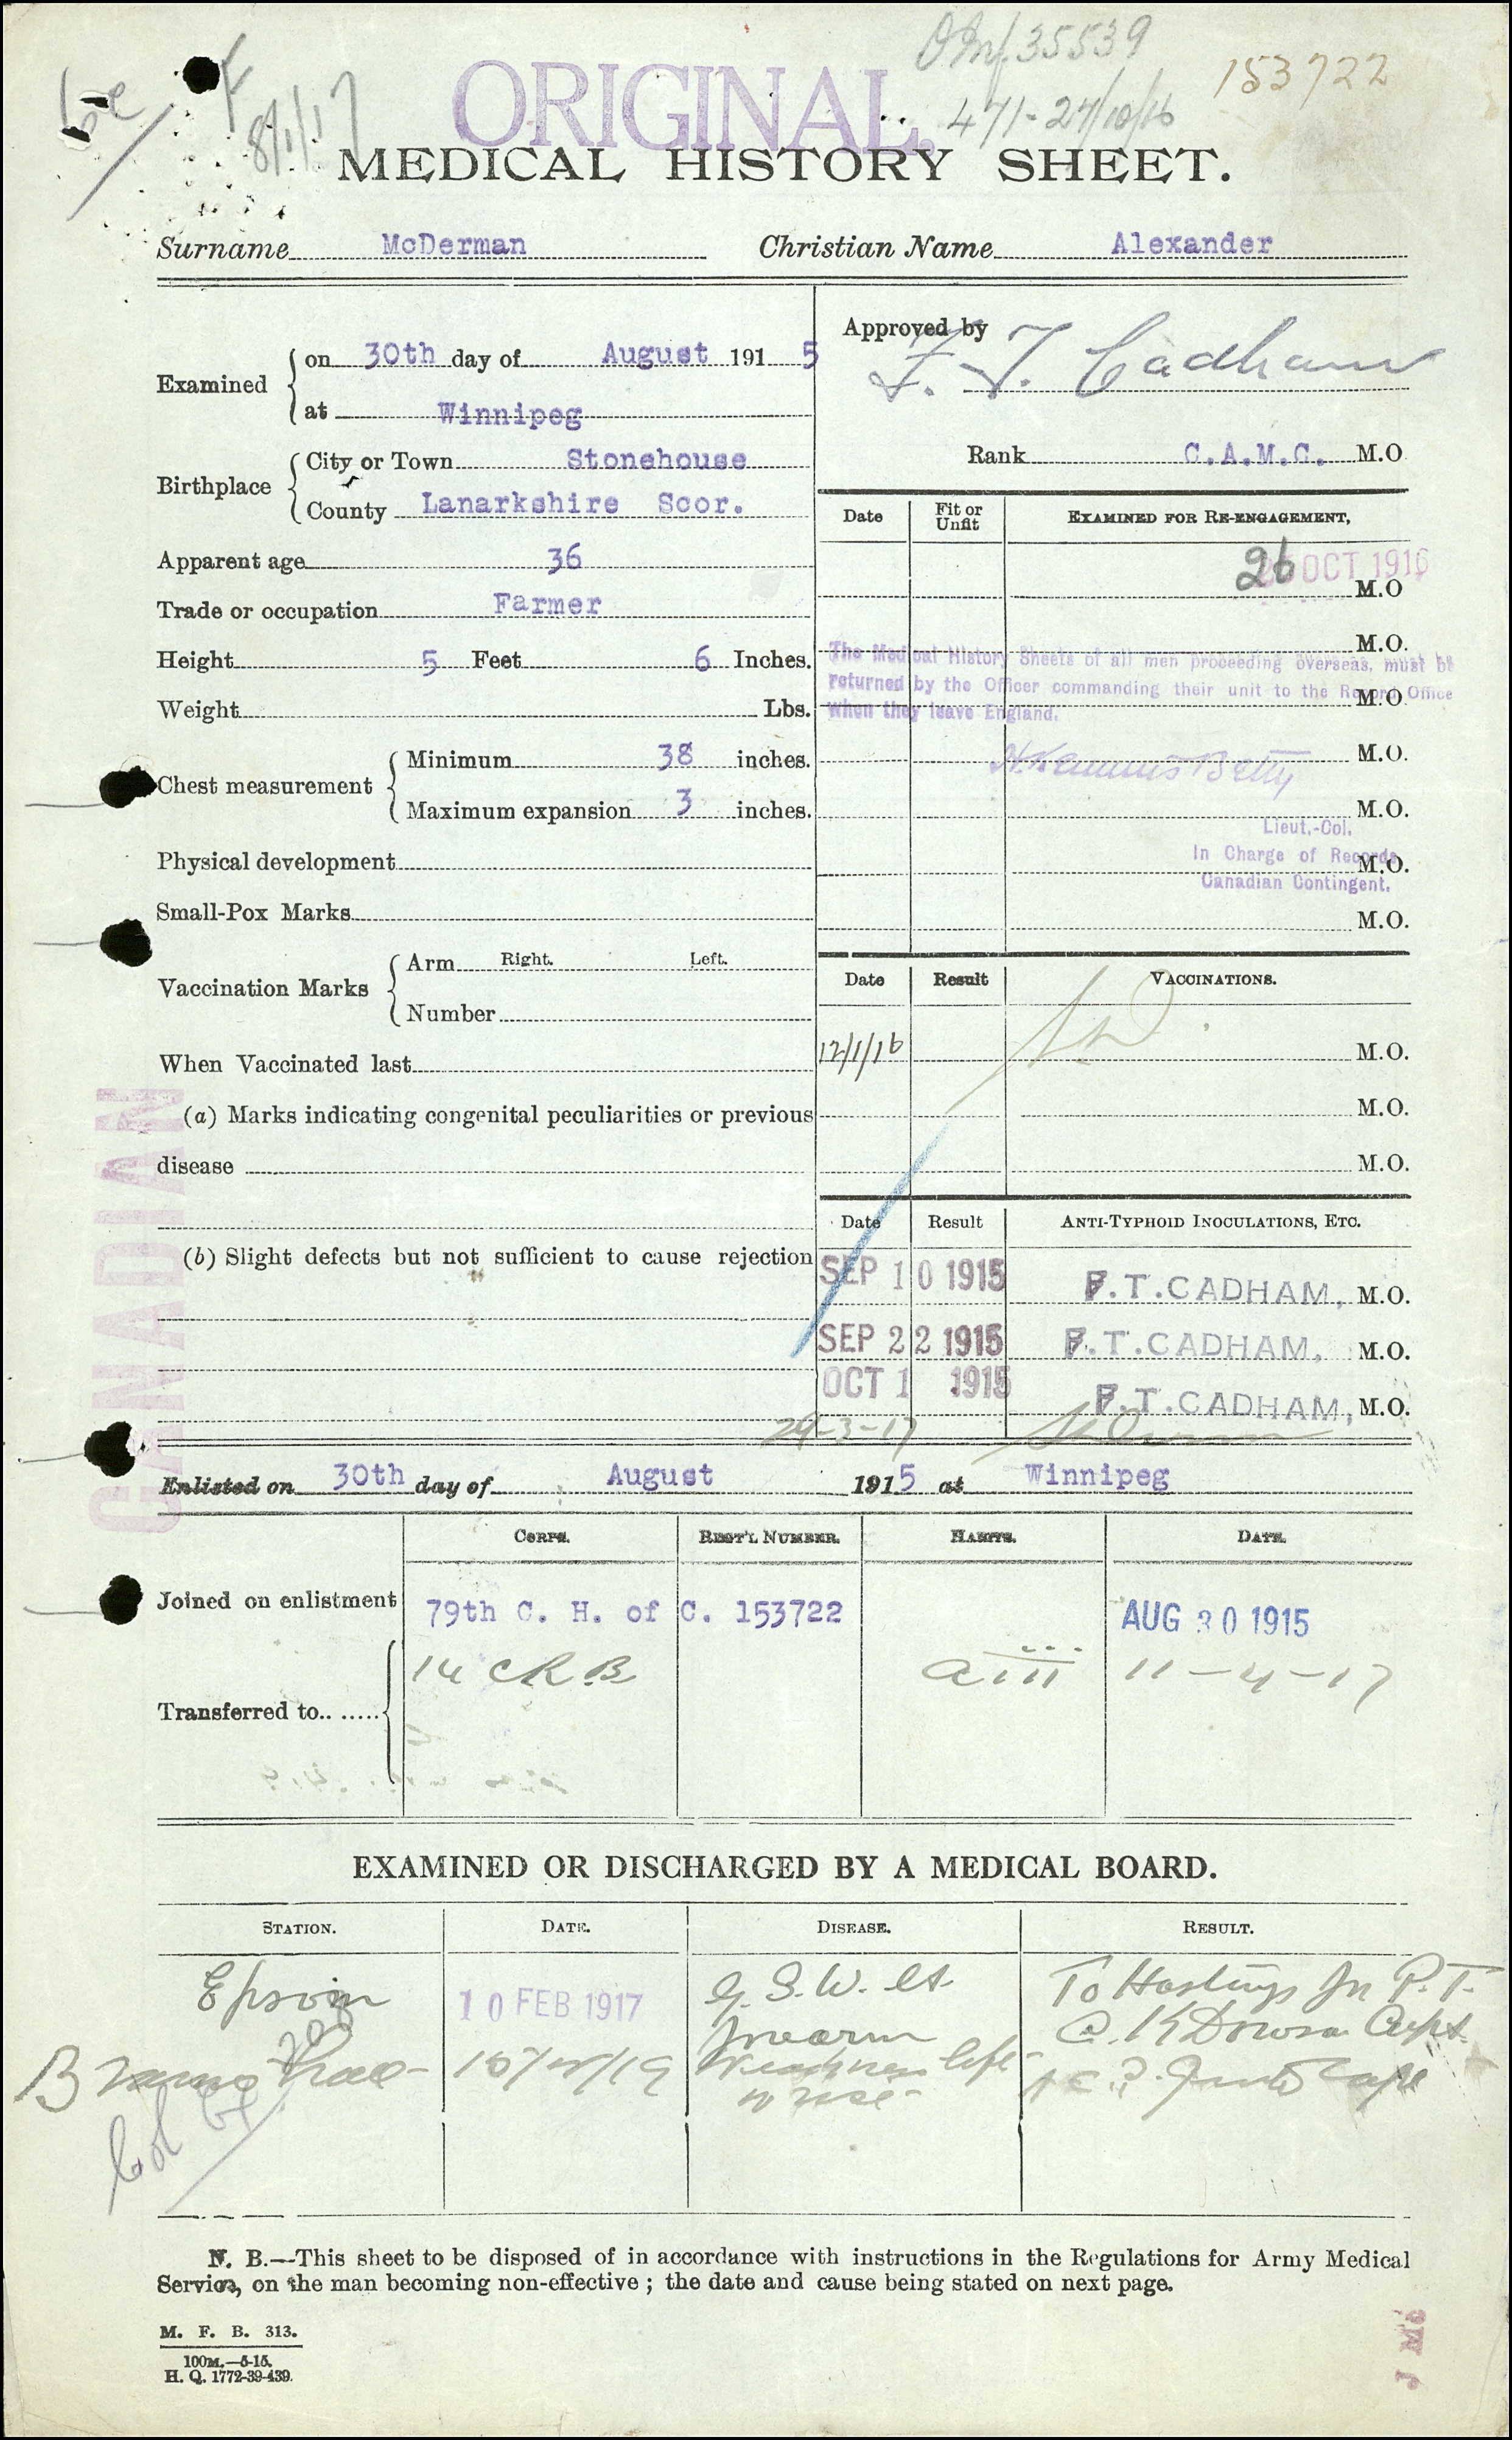 35539
153722
ORIGINAL.
471-24/10/16
8/1/17
MEDICAL HISTORY SHEET.
Surname McDerman Christian Name Alexander
Examined
on 30th day of August 1915
at Winnipeg
Birthplace
City or Town Stonehouse
County Lanarkshire Scor.
Apparent age 36
Trade or occupation Farmer
Height 5 Feet 6 Inches.
Weight Lbs.
Chest measurement
Minimum 38 inches.
Maximum expansion 3 inches.
Physical development
Small-Pox Marks
Vaccination Marks
Arm Right. Left.
Number
When Vaccinated last
(a) Marks indicating congenital peculiarities or previous
disease
(b) Slight defects but not sufficient to cause rejection
CANADIAN
Approved by
F. T. Cadham
Rank C.A.M.C. M.O
Date Fit or Unfit EXAMINED FOR RE-ENGAGEMENT,
26 OCT 1916
M.O
M.O.
The Medical History Sheets of all men proceeding overseas, must be
returned by the Officer commanding their unit to the Record Office
M.O
when they leave England.
M.O.
M.O.
Lieut.-Col.
In Charge of Records
M.O.
Canadian Contingent.
M.O.
Date Result VACCINATIONS.
12/1/16 M.O.
M.O.
M.O.
Date Result ANTI-TYPHOID INOCULATIONS, ETC.
SEP 10 1915 F.T.CADHAM, M.O.
SEP 22 1915 F.T.CADHAM, M.O.
OCT 1 1915 F.T.CADHAM, M.O.
29-3-17
Enlisted on 30th day of August 1915 at Winnipeg
CORPS. REGT'L NUMBER. HABITS. DATE.
Joined on enlistment 79th C. H. of C. 153722 AUG 30 1915
Transferred to.. ..... 14 CRB aiii 11-4-17
EXAMINED OR DISCHARGED BY A MEDICAL BOARD.
STATION. DATE. DISEASE. RESULT.
Epsom 10 FEB 1917 G.S.W. Lt. forearm To Hastings for P.T.
Capt.
Weakness left
N. B.—This sheet to be disposed of in accordance with instructions in the Regulations for Army Medical
Service, on the man becoming non-effective ; the date and cause being stated on next page.
M. F. B. 313.
100M.—5-15.
H. Q. 1772-39-439.